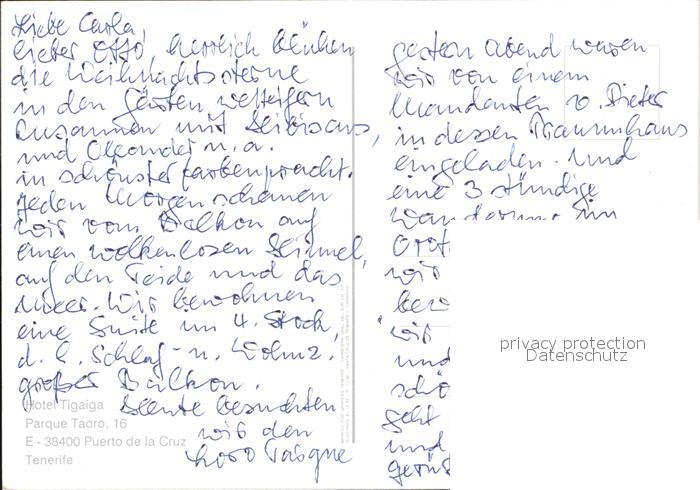 Liebe Carla,
lieber Otto, herrlich blühen
die Weihnachtssterne
in den Gärten, wetteifern
zusammen mit Hibiscus,
und Oleander u. a.
in schönster Farbenpracht.
Jeden Morgen schauen
wir vom Balkon auf
einen wolkenlosen Himmel,
auf den Teide und das
Meer. Wir bewohnen
eine Suite im 4. Stock,
d. h. Schlaf- u. Wohnz.
großer Balkon.
Heute besuchten
wir den
Loro Parque
Hotel Tigaiga
Parque Taoro, 16
E - 38400 Puerto de la Cruz
Tenerife
gestern abend waren
wir von einem
Mandanten v. Dieter
in dessen Traumhaus
eingeladen. Und
eine 3 stündige
Wanderung im
wir
wir
und
geht
und
privacy protection
Datenschutz